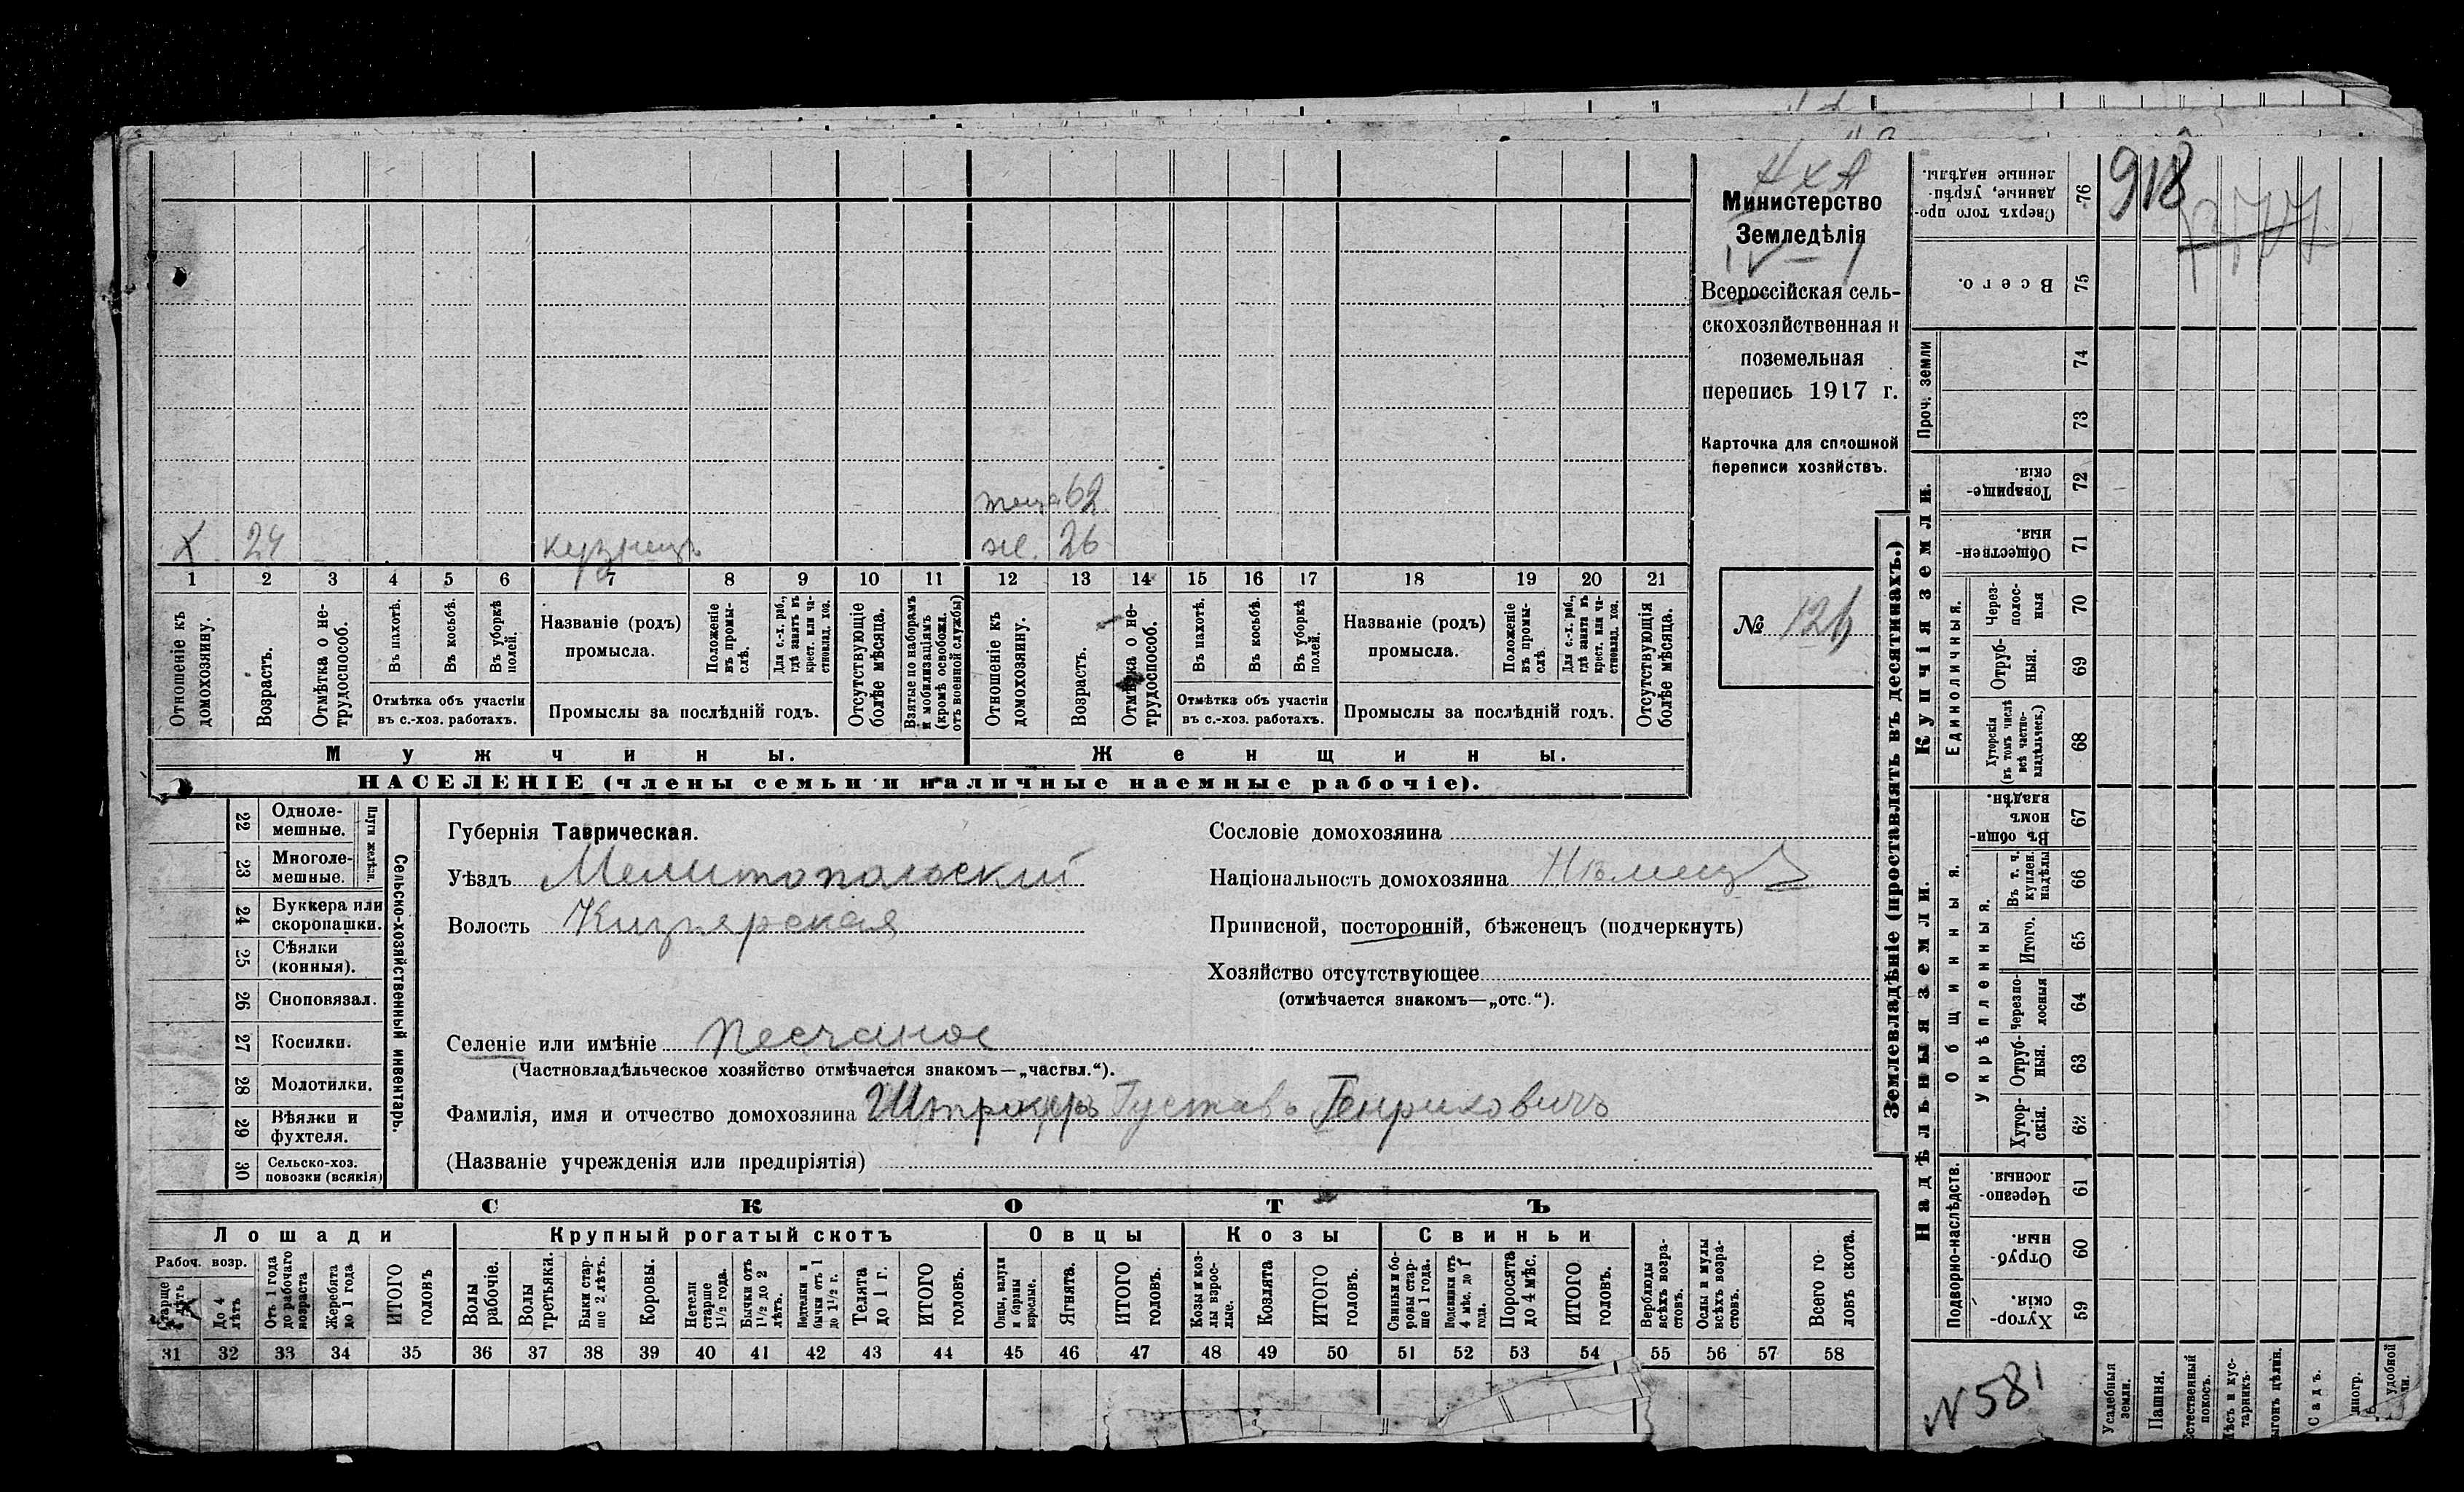 НХА
Министерство
Земледѣлія
IV – 1
Всероссійская сель-
скохозяйственная и
поземельная
перепись 1917 г.
Карточка для сплошной
переписи хозяйствъ.
№ 126
теща 62
х 24 кузнецъ ж. 26
1 2 3 4 5 6 7 8 9 10 11 12 13 14 15 16 17 18 19 20 21
Отношеніе къ домохозяину.
Возрастъ.
Отмѣтка о не-трудоспособ.
Въ пахотѣ.
Въ косьбѣ.
Въ уборкѣ полей.
Отмѣтка объ участіи
въ с.-хоз. работахъ.
Названіе (родъ)
промысла.
Положеніе въ промы-слѣ.
Для с.-х. раб., гдѣ занятъ въ крест. или ча-стновлад. хоз.
Промыслы за послѣдній годъ.
Отсутствующіе болѣе мѣсяца.
Взятые по наборамъ и мобилизаціямъ (кромѣ освобожд. отъ военной службы)
Отношеніе къ домохозяину.
Возрастъ.
Отмѣтка о не-трудоспособ.
Въ пахотѣ.
Въ косьбѣ.
Въ уборкѣ полей.
Отмѣтка объ участіи
въ с.-хоз. работахъ.
Названіе (родъ)
промысла.
Положеніе въ промы-слѣ.
Для с.-х. раб., гдѣ занята въ крест. или ча-стновлад. хоз.
Промыслы за послѣдній годъ.
Отсутствующія болѣе мѣсяца.
Мужчины. Женщины.
НАСЕЛЕНІЕ (члены семьи и наличные наемные рабочіе).
22 Одноле-
мешные.
23 Многоле-
мешные.
Плуги желѣзн.
24 Буккера или
скоропашки.
25 Сѣялки
(конныя).
26 Сноповязал.
27 Косилки.
28 Молотилки.
29 Вѣялки и
фухтеля.
30 Сельско-хоз.
повозки (всякія)
Сельско-хозяйственный инвентарь.
Губернія Таврическая.
Уѣздъ Мелитопольский
Волость Кизиярская
Селеніе или имѣніе Песчаное
(Частновладѣльческое хозяйство отмѣчается знакомъ—„частвл.“).
Фамилія, имя и отчество домохозяина Густавъ Генриховичъ
(Названіе учрежденія или предпріятія)
Сословіе домохозяина
Національность домохозяина Нѣмецъ
Приписной, посторонній, бѣженецъ (подчеркнуть)
Хозяйство отсутствующее
(отмѣчается знакомъ—„отс.“).
СКОТЪ
Лошади Крупный рогатый скотъ Овцы Козы Свиньи
Рабоч. возр.
Старше 4 лѣтъ
До 4 лѣтъ
Отъ 1 года до рабочаго возраста
Жеребята до 1 года
ИТОГО головъ
Волы рабочіе.
Волы третьяки.
Быки стар-ше 2 лѣтъ.
Коровы.
Нетели старше 1½ года.
Бычки отъ 1½ до 2 лѣтъ.
Подтелки и бычки отъ 1 до 1½ г.
Телята до 1 г.
ИТОГО головъ.
Овцы, валухи и бараны взрослые.
Ягнята.
ИТОГО головъ.
Козы и коз-лы взрос-лые.
Козлята
ИТОГО головъ.
Свиньи и бо-ровы стар-ше 1 года.
Подсвинки отъ 4 мѣс. до 1 года.
Поросята до 4 мѣс.
ИТОГО головъ.
Верблюды всѣхъ возра-стовъ.
Ослы и мулы всѣхъ возра-стовъ.
Всего го-ловъ скота.
31 32 33 34 35 36 37 38 39 40 41 42 43 44 45 46 47 48 49 50 51 52 53 54 55 56 57 58
Землевладѣніе (проставлять въ десятинахъ.)
Купчія земли.
Надѣльныя земли.
Сверхъ того про-данные, укрѣп-ленные надѣлы. 76
918
Всего. 75
Проч. земли 74
73
Товарище-скія. 72
Обществен-ныя. 71
Единоличныя.
Через-полос-ныя 70
Отруб-ныя. 69
Хуторскія (въ томъ числѣ всѣ частно-владѣльческ.) 68
Общинныя.
Въ общин-номъ владѣн. 67
Укрѣпленныя.
Въ т. ч. куплен. надѣлы 66
Итого. 65
Черезпо-лосныя 64
Отруб-ныя. 63
Хутор-скія. 62
Подворно-наслѣдств.
Черезпо-лосныя 61
Отруб-ныя. 60
Хутор-скія. 59
N 581
Усадебныя земли.
Пашня.
Естественный покосъ.
Лѣсъ и кус-тарникъ.
ыгонъ цѣлин.
Садъ.
иногр.
удобной
ли.